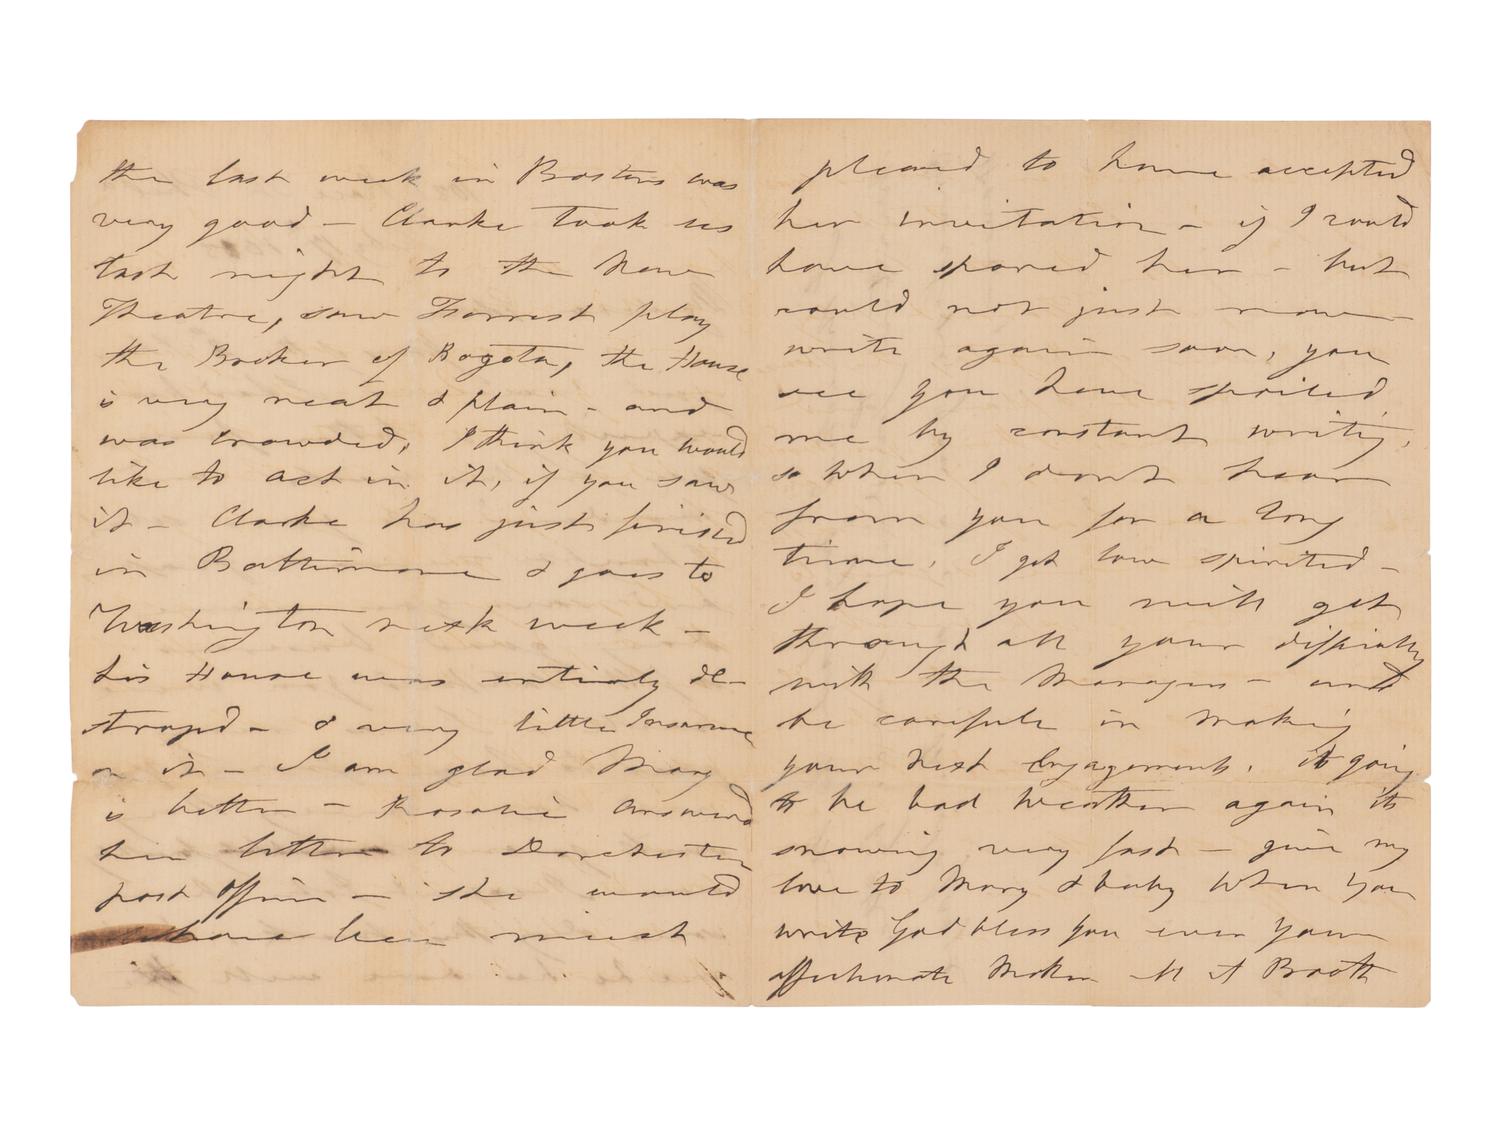 the last week in Boston was
very good – Clarke took us
last night to the New
Theatre, saw Forrest play
the Broker of Bogota, the House
is very neat & plain – and
was crowded, I think you would
like to act in it, if you saw
it – Clarke has just finised
in Baltimore & goes to
Washington next week –
his House was entirely de-
stroyd – & very little Insurance
on it – I am glad Mary
is better – Rosalie answerd
her letter to Dorchester
post office – she would
have been most
pleased to have accepted
her invitation – if I could
have spared her – but
could not just now
write again soon, you
see you have spoiled
me by constant writing,
so when I dont hear
from you for a long
time, I get low spirited –
I hope you will get
through all your difficulty
with the Managers – and
be carefule in making
your next Engagements. its going
to be bad weather again its
snowing very fast – give my
love to Mary & baby when you
write God bless you ever your
affectionate Mother M A Booth